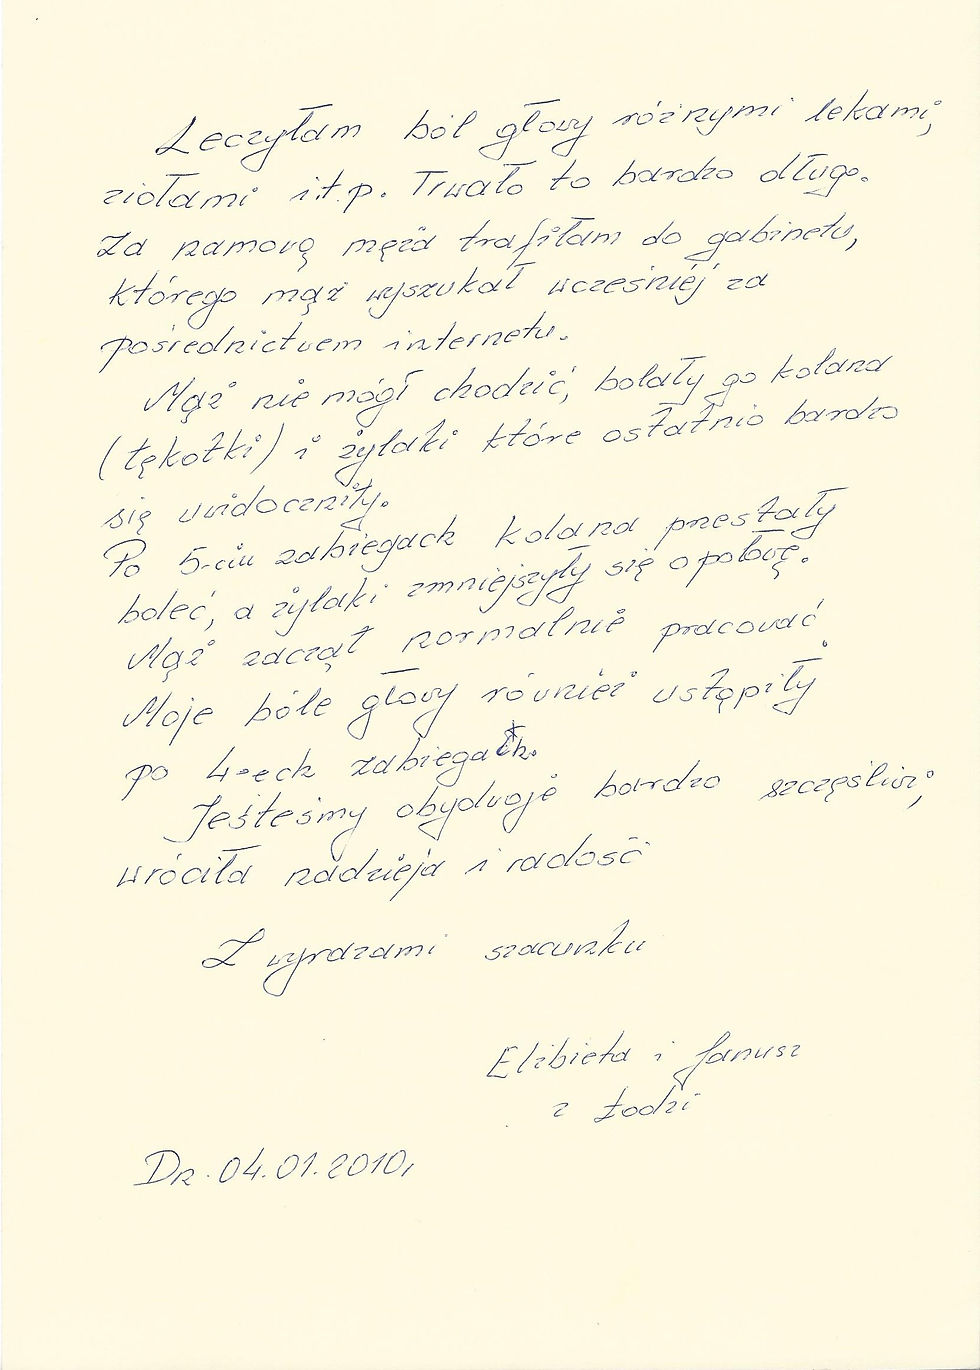 Leczyłam ból głowy różnymi lekami,
ziołami i.t.p. Trwało to bardzo długo.
Za namową męża trafiłam do gabinetu,
którego mąż wyszukał wcześniej za
pośrednictwem internetu.
Mąż nie mógł chodzić, bolały go kolana
(łękotki) i żylaki które ostatnio bardzo
się uwidoczniły.
Po 5-ciu zabiegach kolana przestały
boleć, a żylaki zmniejszyły się o połowę.
Mąż zaczął normalnie pracować.
Moje bóle głowy również ustąpiły
po 4-ech zabiegach.
Jesteśmy obydwoje bardzo szczęśliwi,
wróciła nadzieja i radość
Z wyrazami szacunku
Elżbieta i Janusz
z Łodzi
Dn. 04.01.2010r